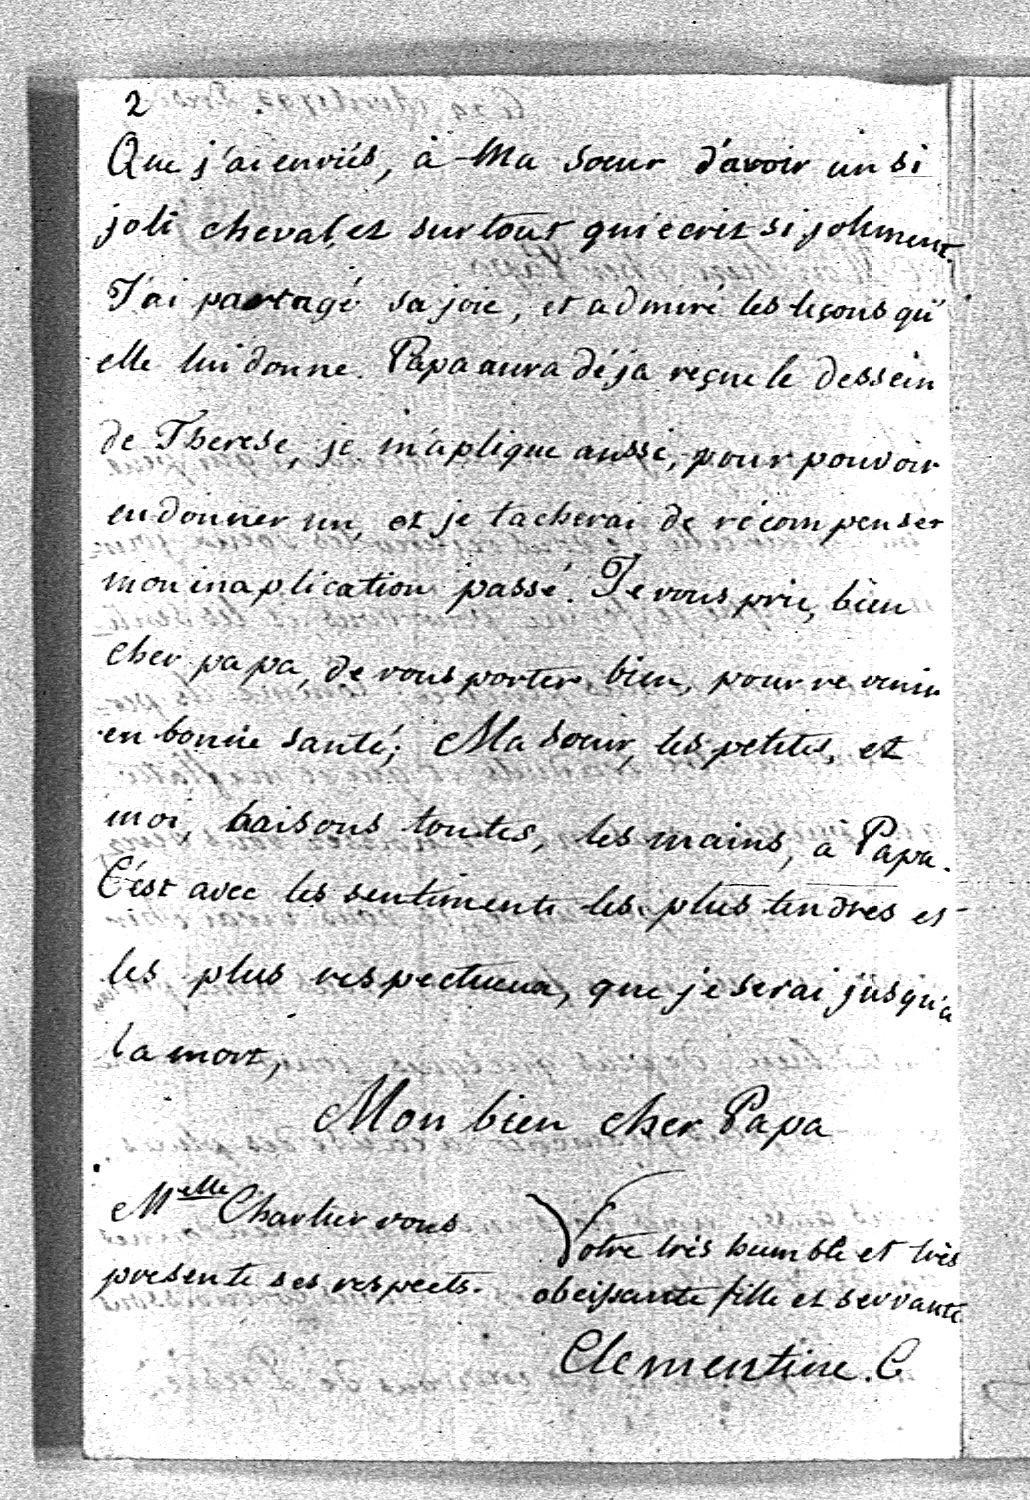 2
Que j'ai enviés, à Ma sœur d'avoir un si
joli cheval, et surtout qui écrit si joliment.
J'ai partagé sa joie, et admiré les leçons qu'
elle lui donne. Papa aura déja reçue le dessein
de Therese, je m'aplique aussi, pour pouvoir
en donner un, et je tacherai de récompenser
mon inaplication passé. Je vous prie, bien
cher papa, de vous porter bien, pour revenir
en bonne santé; Ma sœur, les petites, et
moi, baisons toutes, les mains, à Papa.
C'est avec les sentiments les plus tendres et
les plus respectueux, que je serai jusqu'a
la mort,
Mon bien cher Papa
Melle Charlier vous
presente ses respects.
Votre très humble et très
obeissante fille et servante
Clementine. C